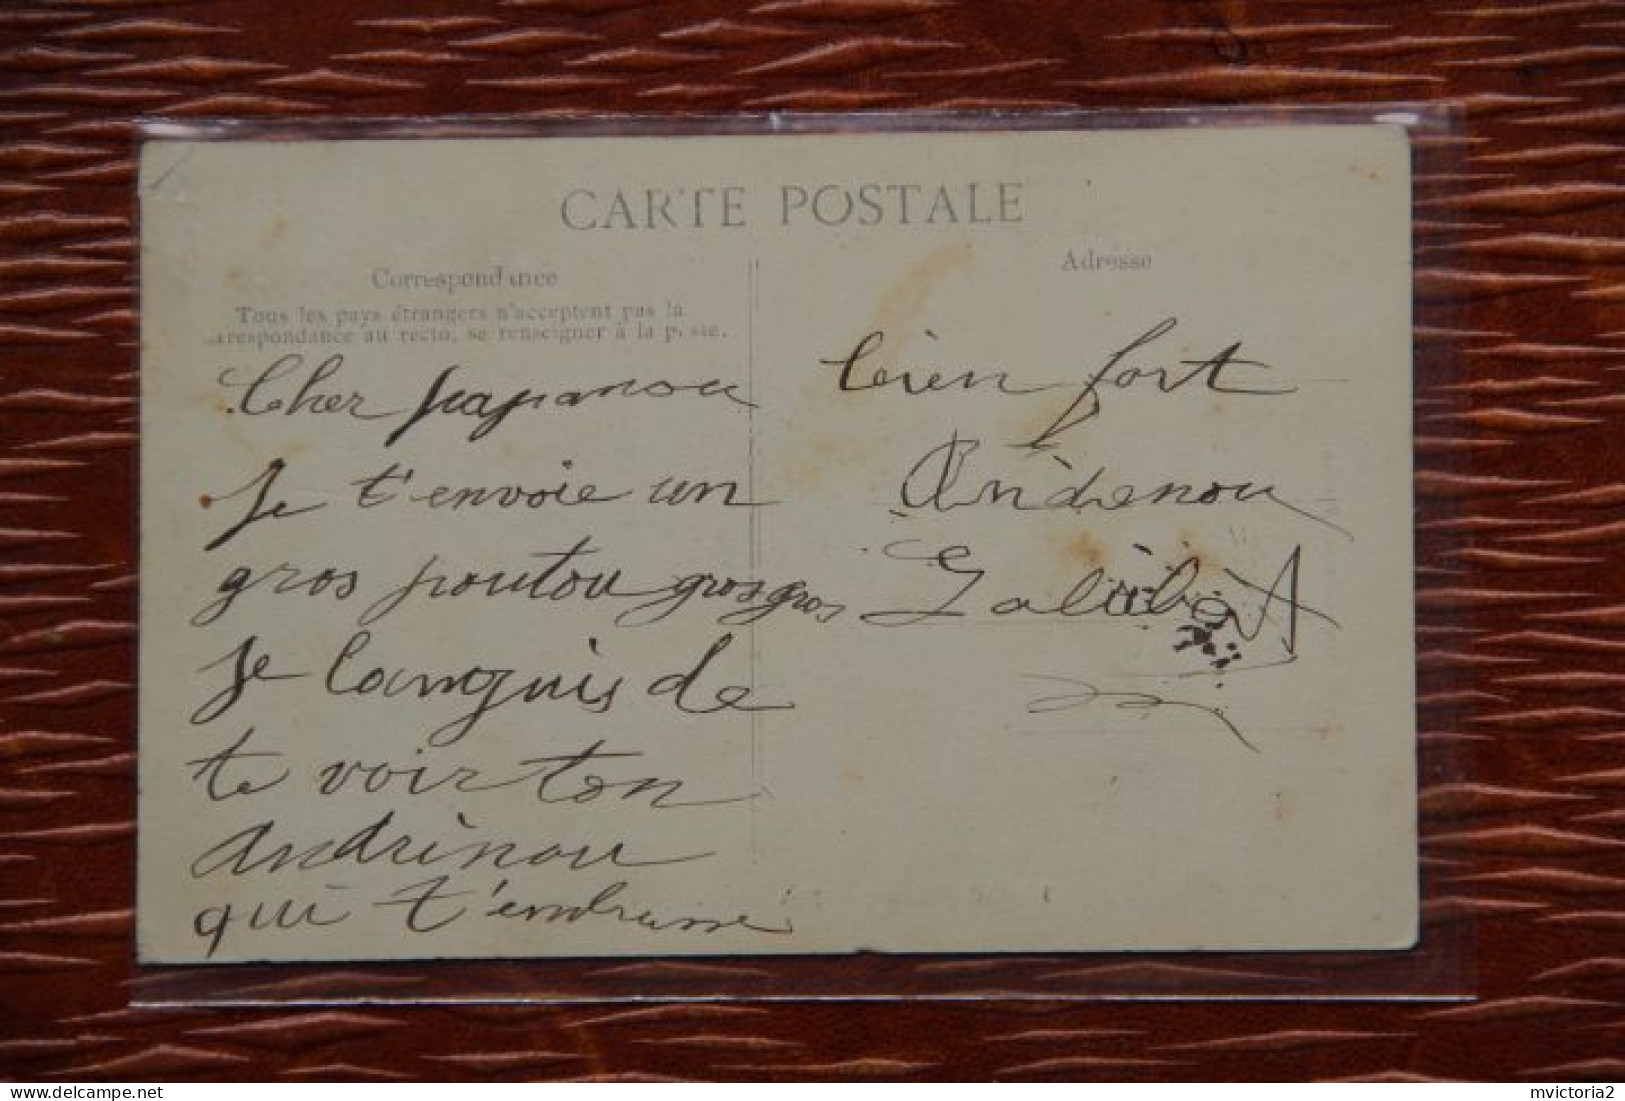 CARTE POSTALE
Correspondance
Tous les pays étrangers n'acceptent pas la
correspondance au recto, se renseigner à la poste.
Adresse
Cher papanou
Je t'envoie un
gros poutou gros gros
Je languis de
te voir ton
Andrinou
qui t'embrasse
bien fort
Andrenou
delcampe.net
mvictoria2